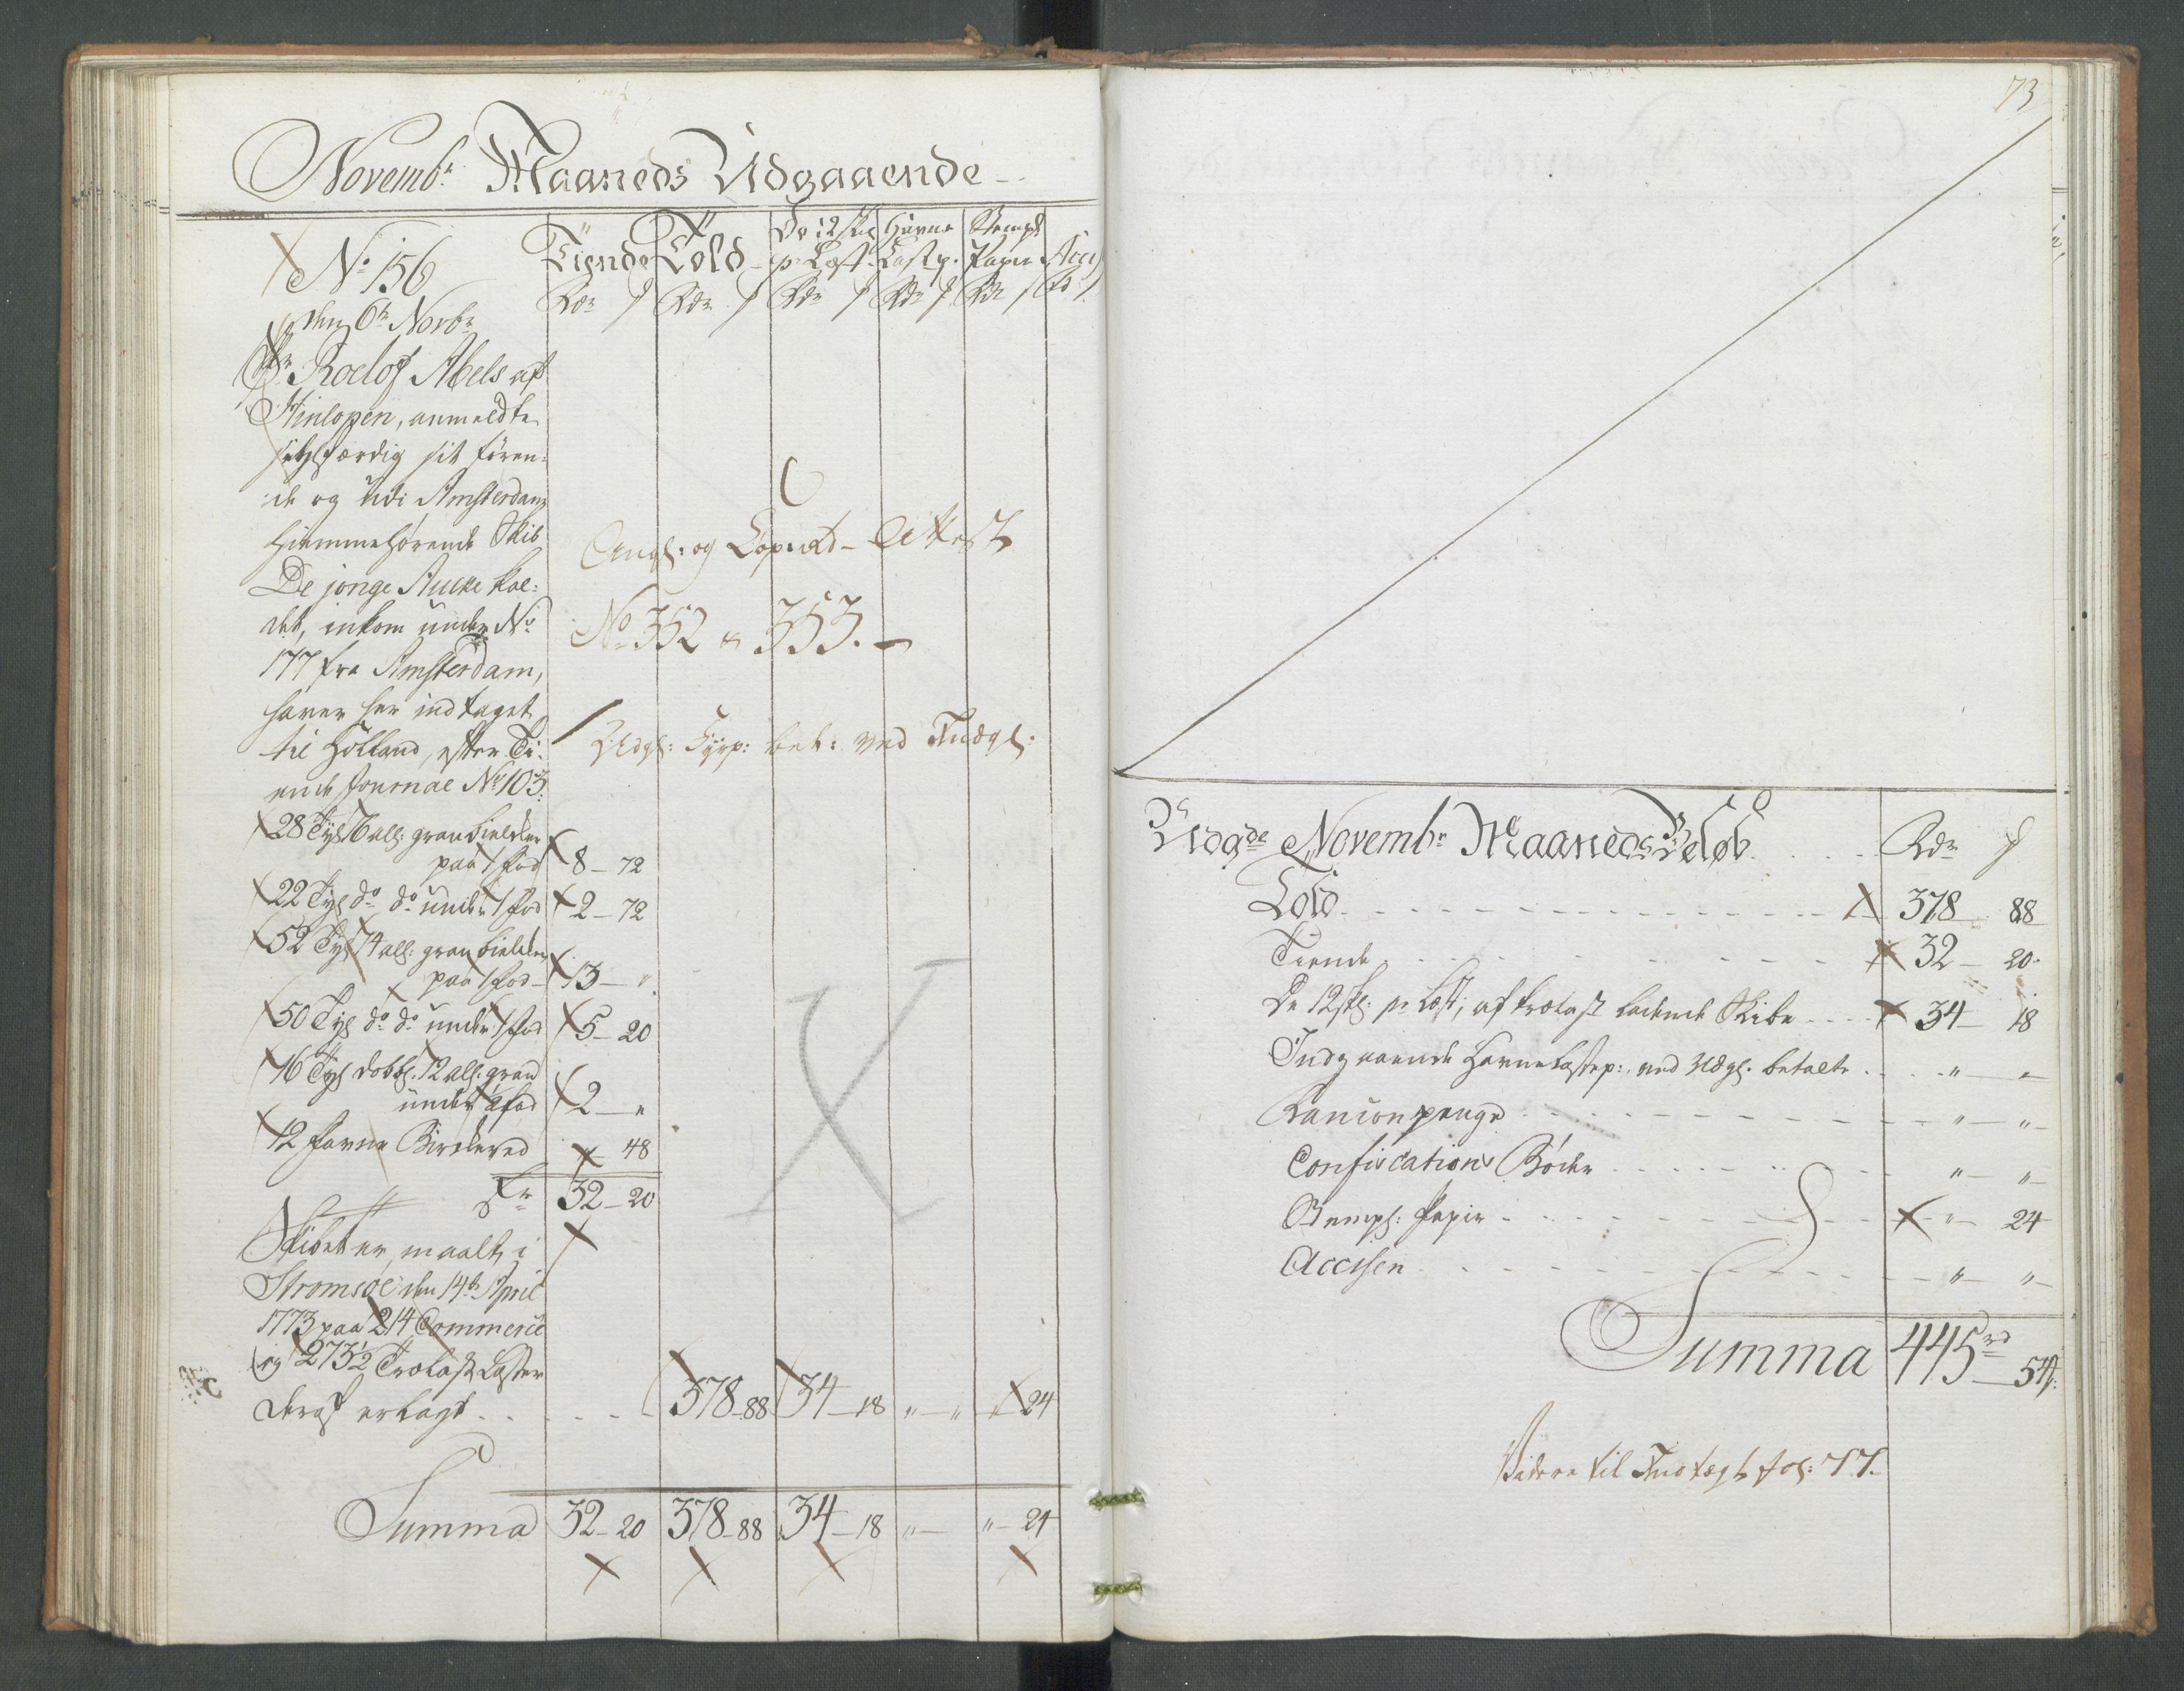 Novembr Maaneds Udgaaende
No 156
Tiende
Told
De 12 skl pr Læst
Havne Lastp.
Stempl Papir
Acci
Rdr ß Rdr ß Rdr ß Rdr ß Rdr ß Rd ß
den 6te Novbr
Skr Roelof Abels af
Hinlopen, anmeldte
seglfærdig sit føren-
de og udi Amsterdam
hiemmehørende Skib
De jonge Aucke kal-
det, inkom under No
177 fra Amsterdam,
haver her indtaget
til Holland, efter Ti-
ende Journal No 103:
Angl: og Attest
No 352 & 353.
Udgl: Fyrp: bet: ved Indgl:
28 Tyl 6 all: gran bielcker
paa 1 fod 8 - 72
22 Tyl do do under 1 fod 2 - 72
52 Tyl 4 all: gran bielcker
paa 1 fod - 13 - "
50 Tyl do do under 1 fod 5 - 20
16 Tyl dobbl: 12 all: gran
under fod 2 - "
12 favne Bircheved " 48
Er 32 - 20
Skibet er maalt i
Stromsøe den 14de April
1773 paa 214 Commerce
og 273 1/2 Trælast Læster
deraf erlagt - - - 378 - 88 34 - 18 " - " " 24
Summa 32 - 20 378 - 88 34 - 18 " - " - 24
73
Udgde Novembr Maaneds Beløb - - Rdr ß
Told - - - 378 - 88
Tiende - - - 32 - 20
De 12 skl: pr Læst, af Trælast ladende Skibe - - 34 - 18
Indgaaende Havne Lastep: ved Udgl. betalte - - " - "
Rancionpenge - - - " - "
Confiscations Bøder - - - " - "
Stempl: Papir - - - " - 24
Accisen - - - " - "
Summa 445 rd - 54 ß:
Videre til Indtægt fol: 77.